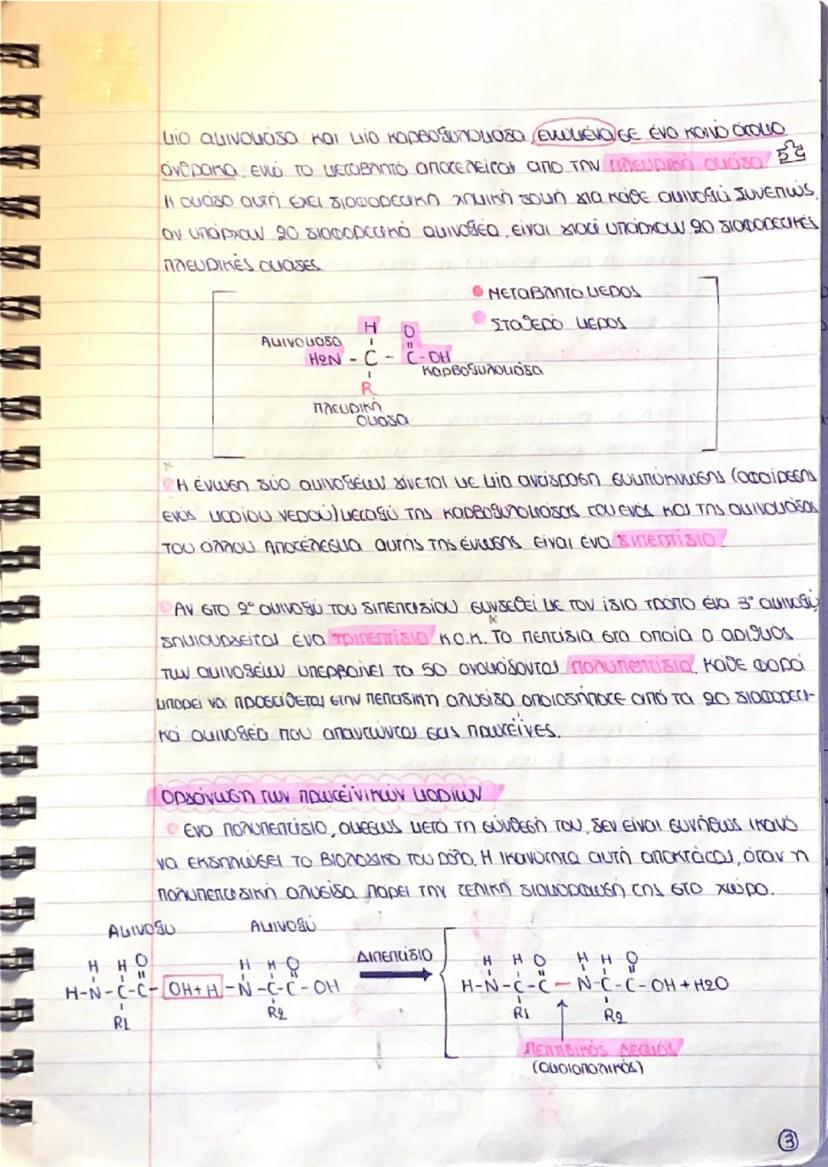 μία αμινομάδα και μία καρβοξυλομάδα, ενωμένα σε ένα κοινό άτομο
άνθρακα, ενώ το μεταβλητό αποτελείται από την πλευρική ομάδα
Η ομάδα αυτή έχει διαφορετική χημική δομή για κάθε αμινοξύ. Συνεπώς,
αν υπάρχουν 20 διαφορετικά αμινοξέα, είναι γιατί υπάρχουν 20 διαφορετικές
πλευρικές ομάδες.
• ΜΕΤΑΒΛΗΤΟ ΜΕΡΟΣ
• ΣΤΑΘΕΡΟ ΜΕΡΟΣ
Αμινομάδα
H O
H2N - C - C - OH
καρβοξυλομάδα
R
πλευρική
ομάδα
• Η ένωση δύο αμινοξέων γίνεται με μία αντίδραση συμπύκνωσης (αφαίρεσης
ενός μορίου νερού) μεταξύ της καρβοξυλομάδας του ενός και της αμινομάδας
του άλλου. Αποτέλεσμα αυτής της ένωσης είναι ένα διπεπτίδιο.
• Αν στο 2° αμινοξύ του διπεπτιδίου συνδεθεί με τον ίδιο τρόπο ένα 3° αμινοξύ,
δημιουργείται ένα τριπεπτίδιο κ.ο.κ. Τα πεπτίδια στα οποία ο αριθμός
των αμινοξέων υπερβαίνει τα 50 ονομάζονται πολυπεπτίδια. Κάθε φορά
μπορεί να προστίθεται στην πεπτιδική αλυσίδα οποιοδήποτε από τα 20 διαφορετι-
κά αμινοξέα που απαντώνται στις πρωτεΐνες.
Οργάνωση των πρωτεϊνικών μορίων
• Ένα πολυπεπτίδιο, αμέσως μετά τη σύνθεσή του, δεν είναι συνήθως ικανό
να εκδηλώσει το βιολογικό του ρόλο. Η ικανότητα αυτή αποκτάται, όταν η
πολυπεπτιδική αλυσίδα πάρει την τελική διαμόρφωσή της στο χώρο.
Αμινοξύ Αμινοξύ
Διπεπτίδιο
H H O H H O H H O H H O
H-N-C-C-OH+H-N-C-C-OH H-N-C-C-N-C-C-OH+H2O
R1 R2 R1 R2
Πεπτιδικός Δεσμός
(ομοιοπολικός)
3